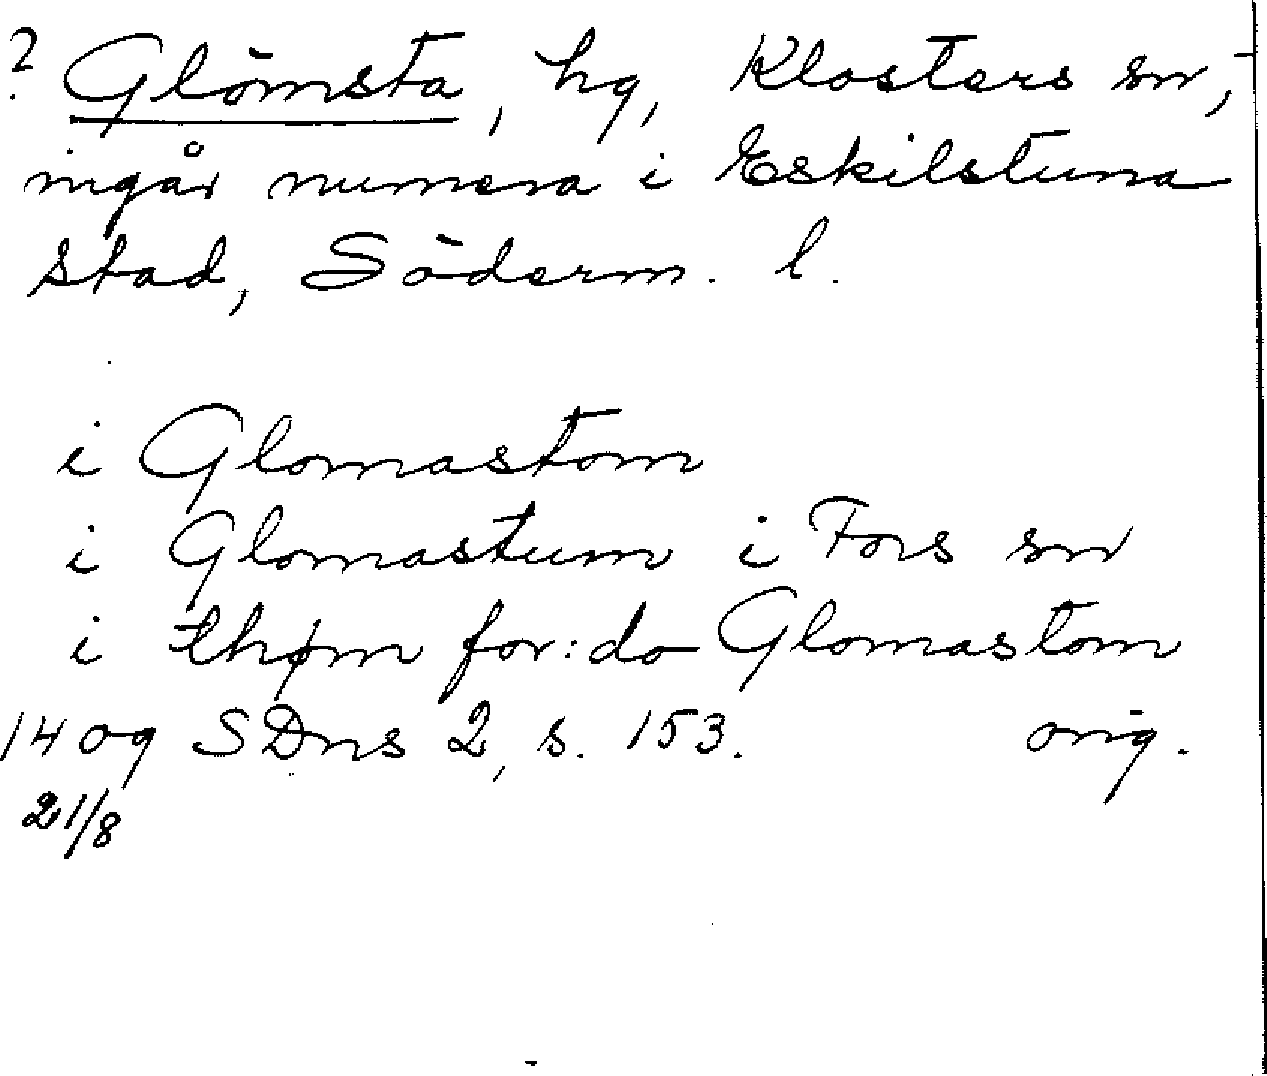 ? Glömsta, hg, Klosters sn,
ingår numera i Eskilstuna
stad, Söderm. l.
i Glomastom
i Glomastum i Fors sn
i thøm for:do Glomastom
1409 SDns 2, s. 153. orig.
21/8